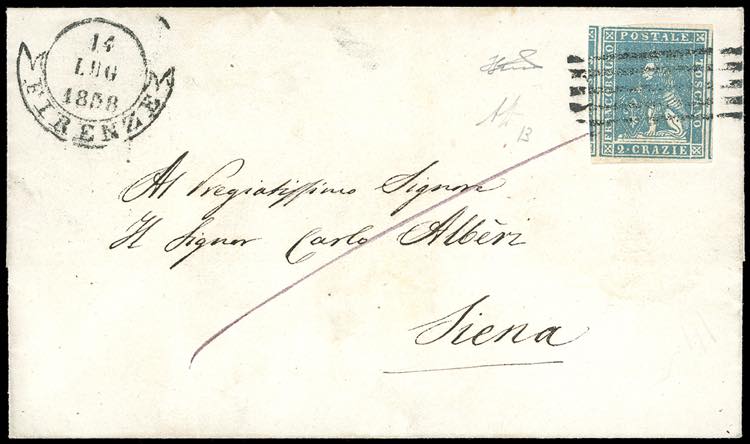 14
LUG
1858
FIRENZE
POSTALE
FRANCOBOLLO
TOSCANO
2 · CRAZIE
13
Al Pregiatissimo Signore
Il Signor Carlo Albèri
Siena